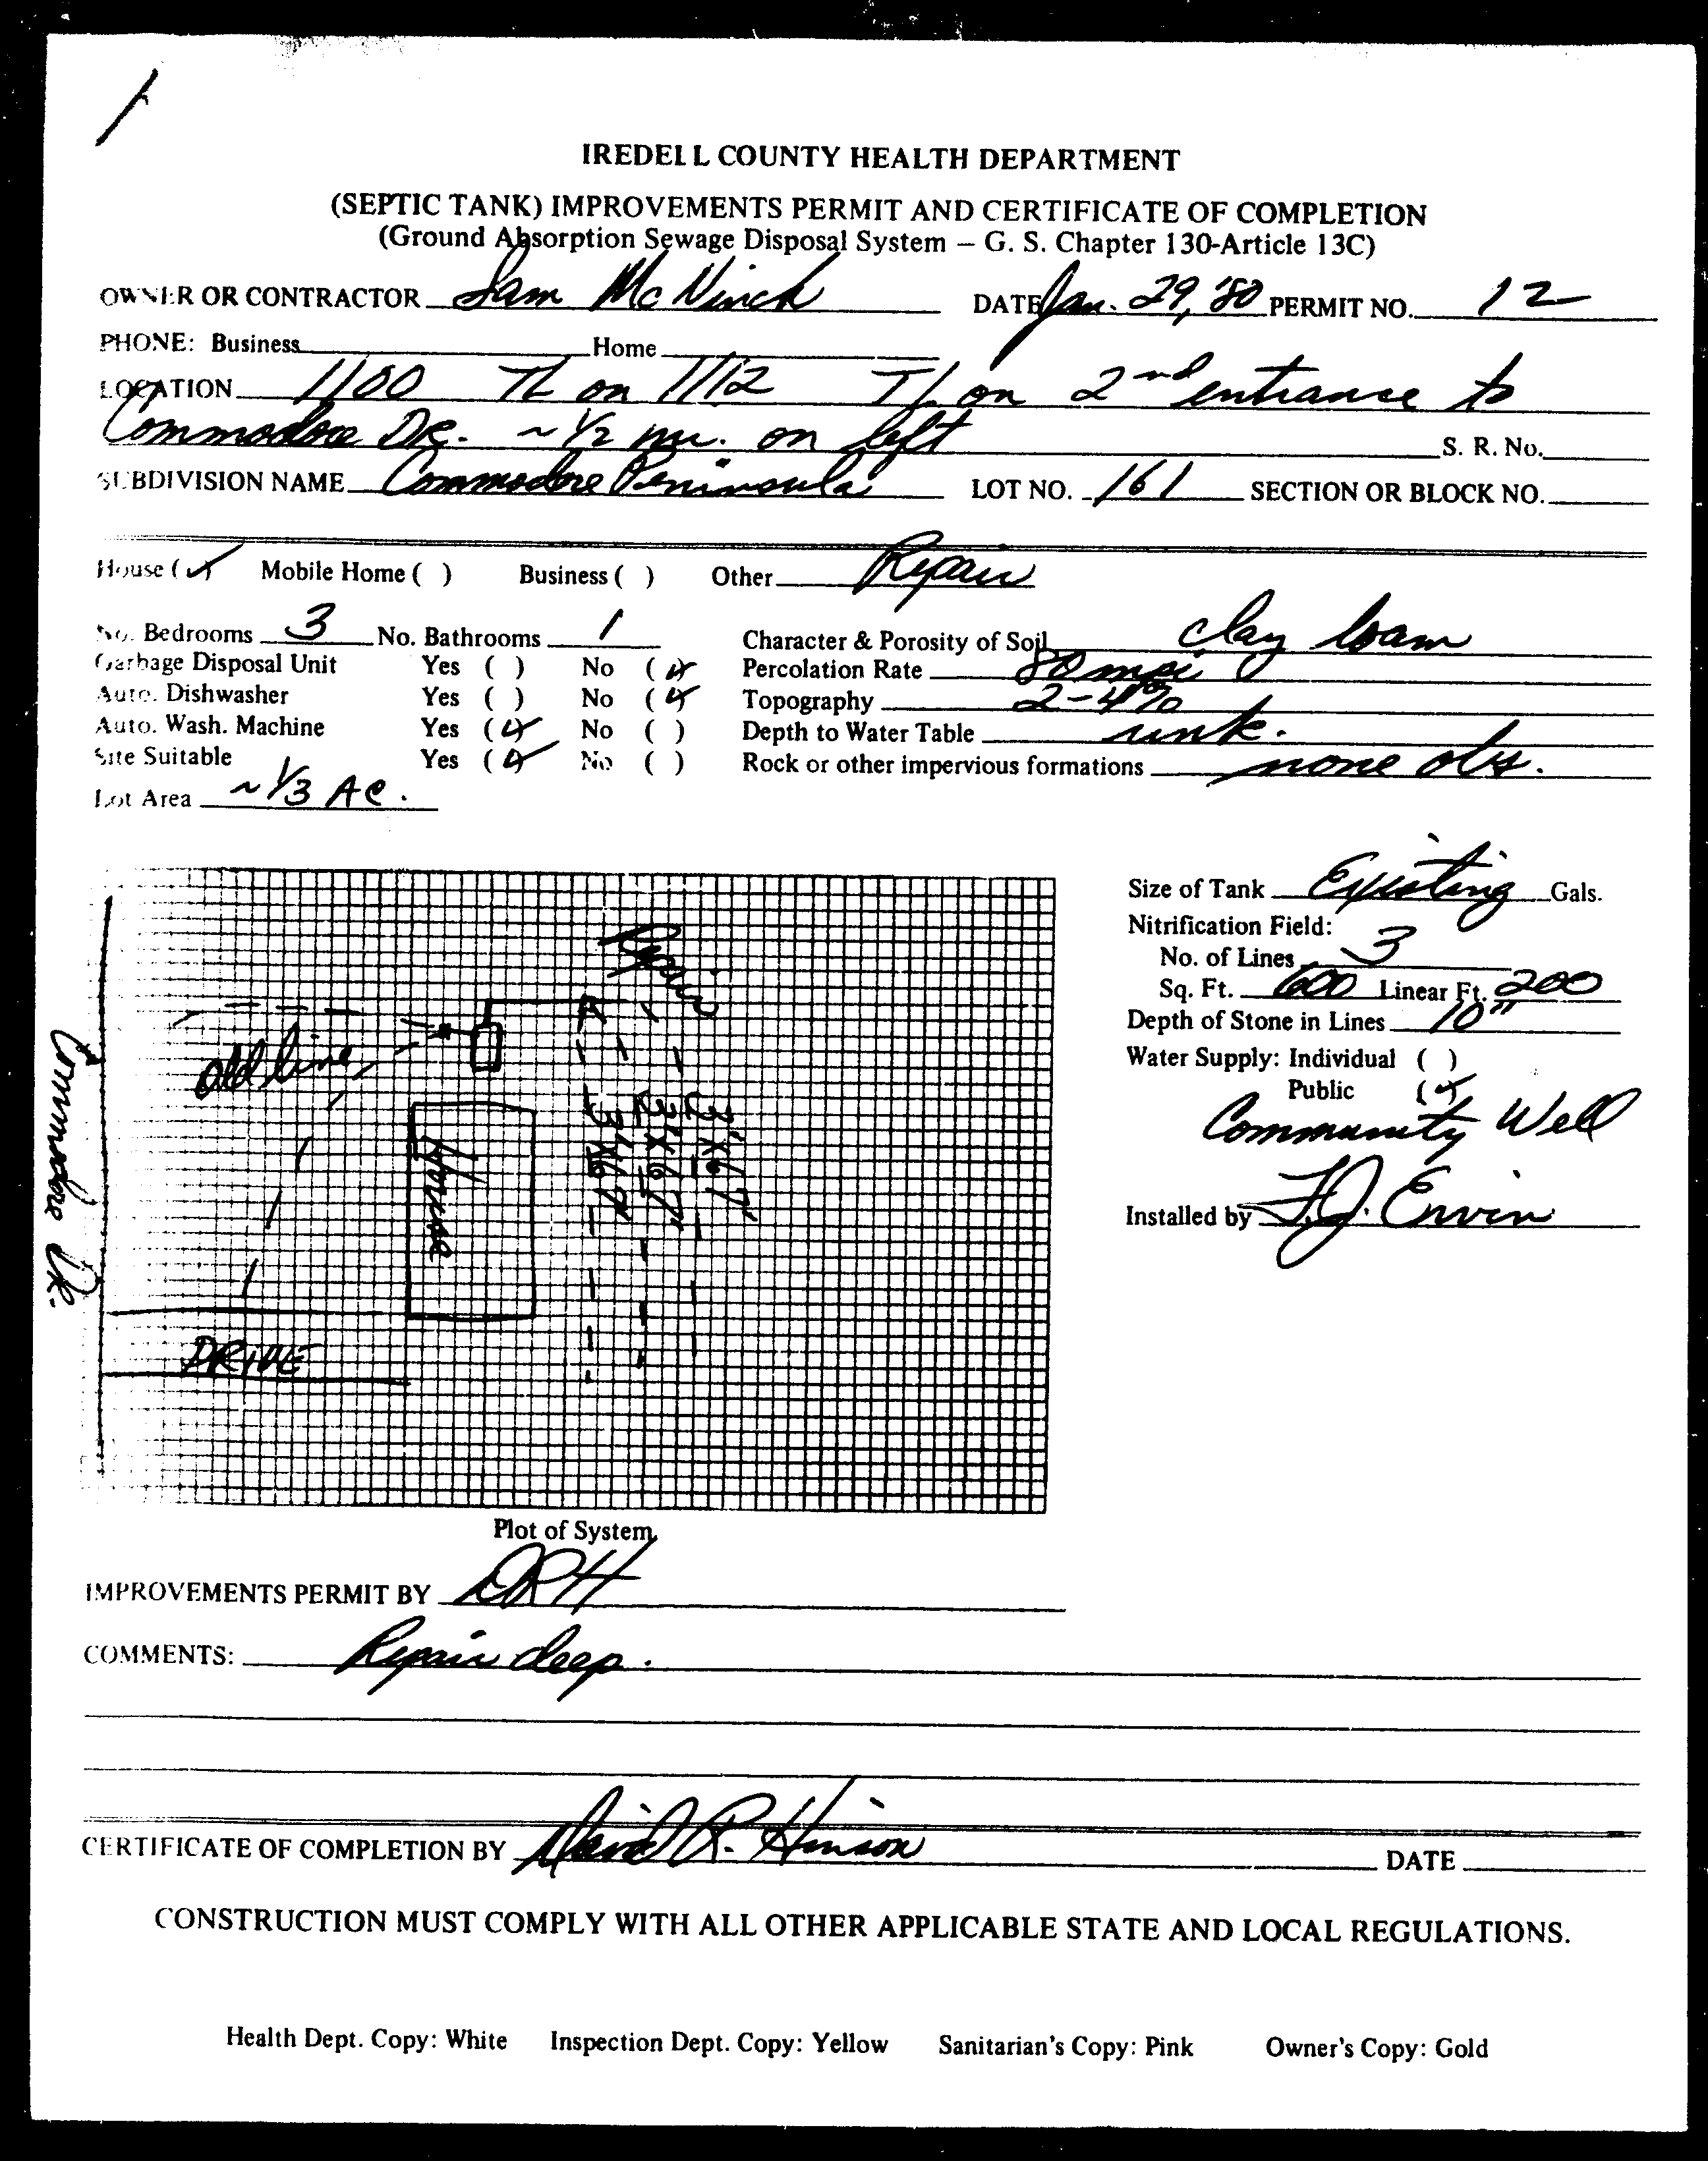 IREDELL COUNTY HEALTH DEPARTMENT
(SEPTIC TANK) IMPROVEMENTS PERMIT AND CERTIFICATE OF COMPLETION
(Ground Absorption Sewage Disposal System – G. S. Chapter 130-Article 13C)
OWNER OR CONTRACTOR Sam McNinch DATE Jan. 29, '80 PERMIT NO. 12
PHONE: Business Home
LOCATION 1100 TL on 1112 TL on 2nd entrance to
Commodore Dr. ~ 1/2 mi. on left S. R. No.
SUBDIVISION NAME Commodore Peninsula LOT NO. 161 SECTION OR BLOCK NO.
House (✓) Mobile Home ( ) Business ( ) Other Repair
No. Bedrooms 3 No. Bathrooms 1 Character & Porosity of Soil clay loam
Garbage Disposal Unit Yes ( ) No (✓) Percolation Rate 80 mpi
Auto. Dishwasher Yes ( ) No (✓) Topography 2-4%
Auto. Wash. Machine Yes (✓) No ( ) Depth to Water Table unk.
Site Suitable Yes (✓) No ( ) Rock or other impervious formations none obs.
Lot Area ~ 1/3 Ac.
Size of Tank Existing Gals.
Nitrification Field:
No. of Lines 3
Sq. Ft. 600 Linear Ft. 200
Depth of Stone in Lines 10"
Water Supply: Individual ( )
Public (✓)
Community Well
Installed by F.J. Ervin
Repair
old line
3'X67'
3'X67'
3'X67'
House
Commodore Dr.
DRIVE
Plot of System
IMPROVEMENTS PERMIT BY DRH
COMMENTS: Repair deep.
CERTIFICATE OF COMPLETION BY David R. Hinson DATE
CONSTRUCTION MUST COMPLY WITH ALL OTHER APPLICABLE STATE AND LOCAL REGULATIONS.
Health Dept. Copy: White Inspection Dept. Copy: Yellow Sanitarian's Copy: Pink Owner's Copy: Gold